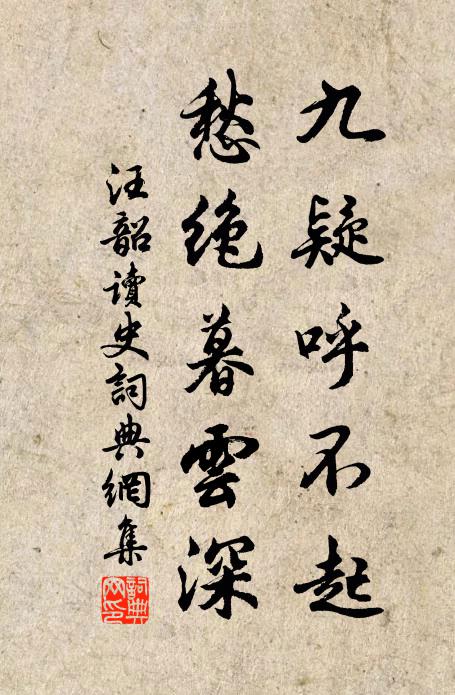 九疑呼不起
愁绝暮雲深
汪韶讀史詞典網集
詞典網印